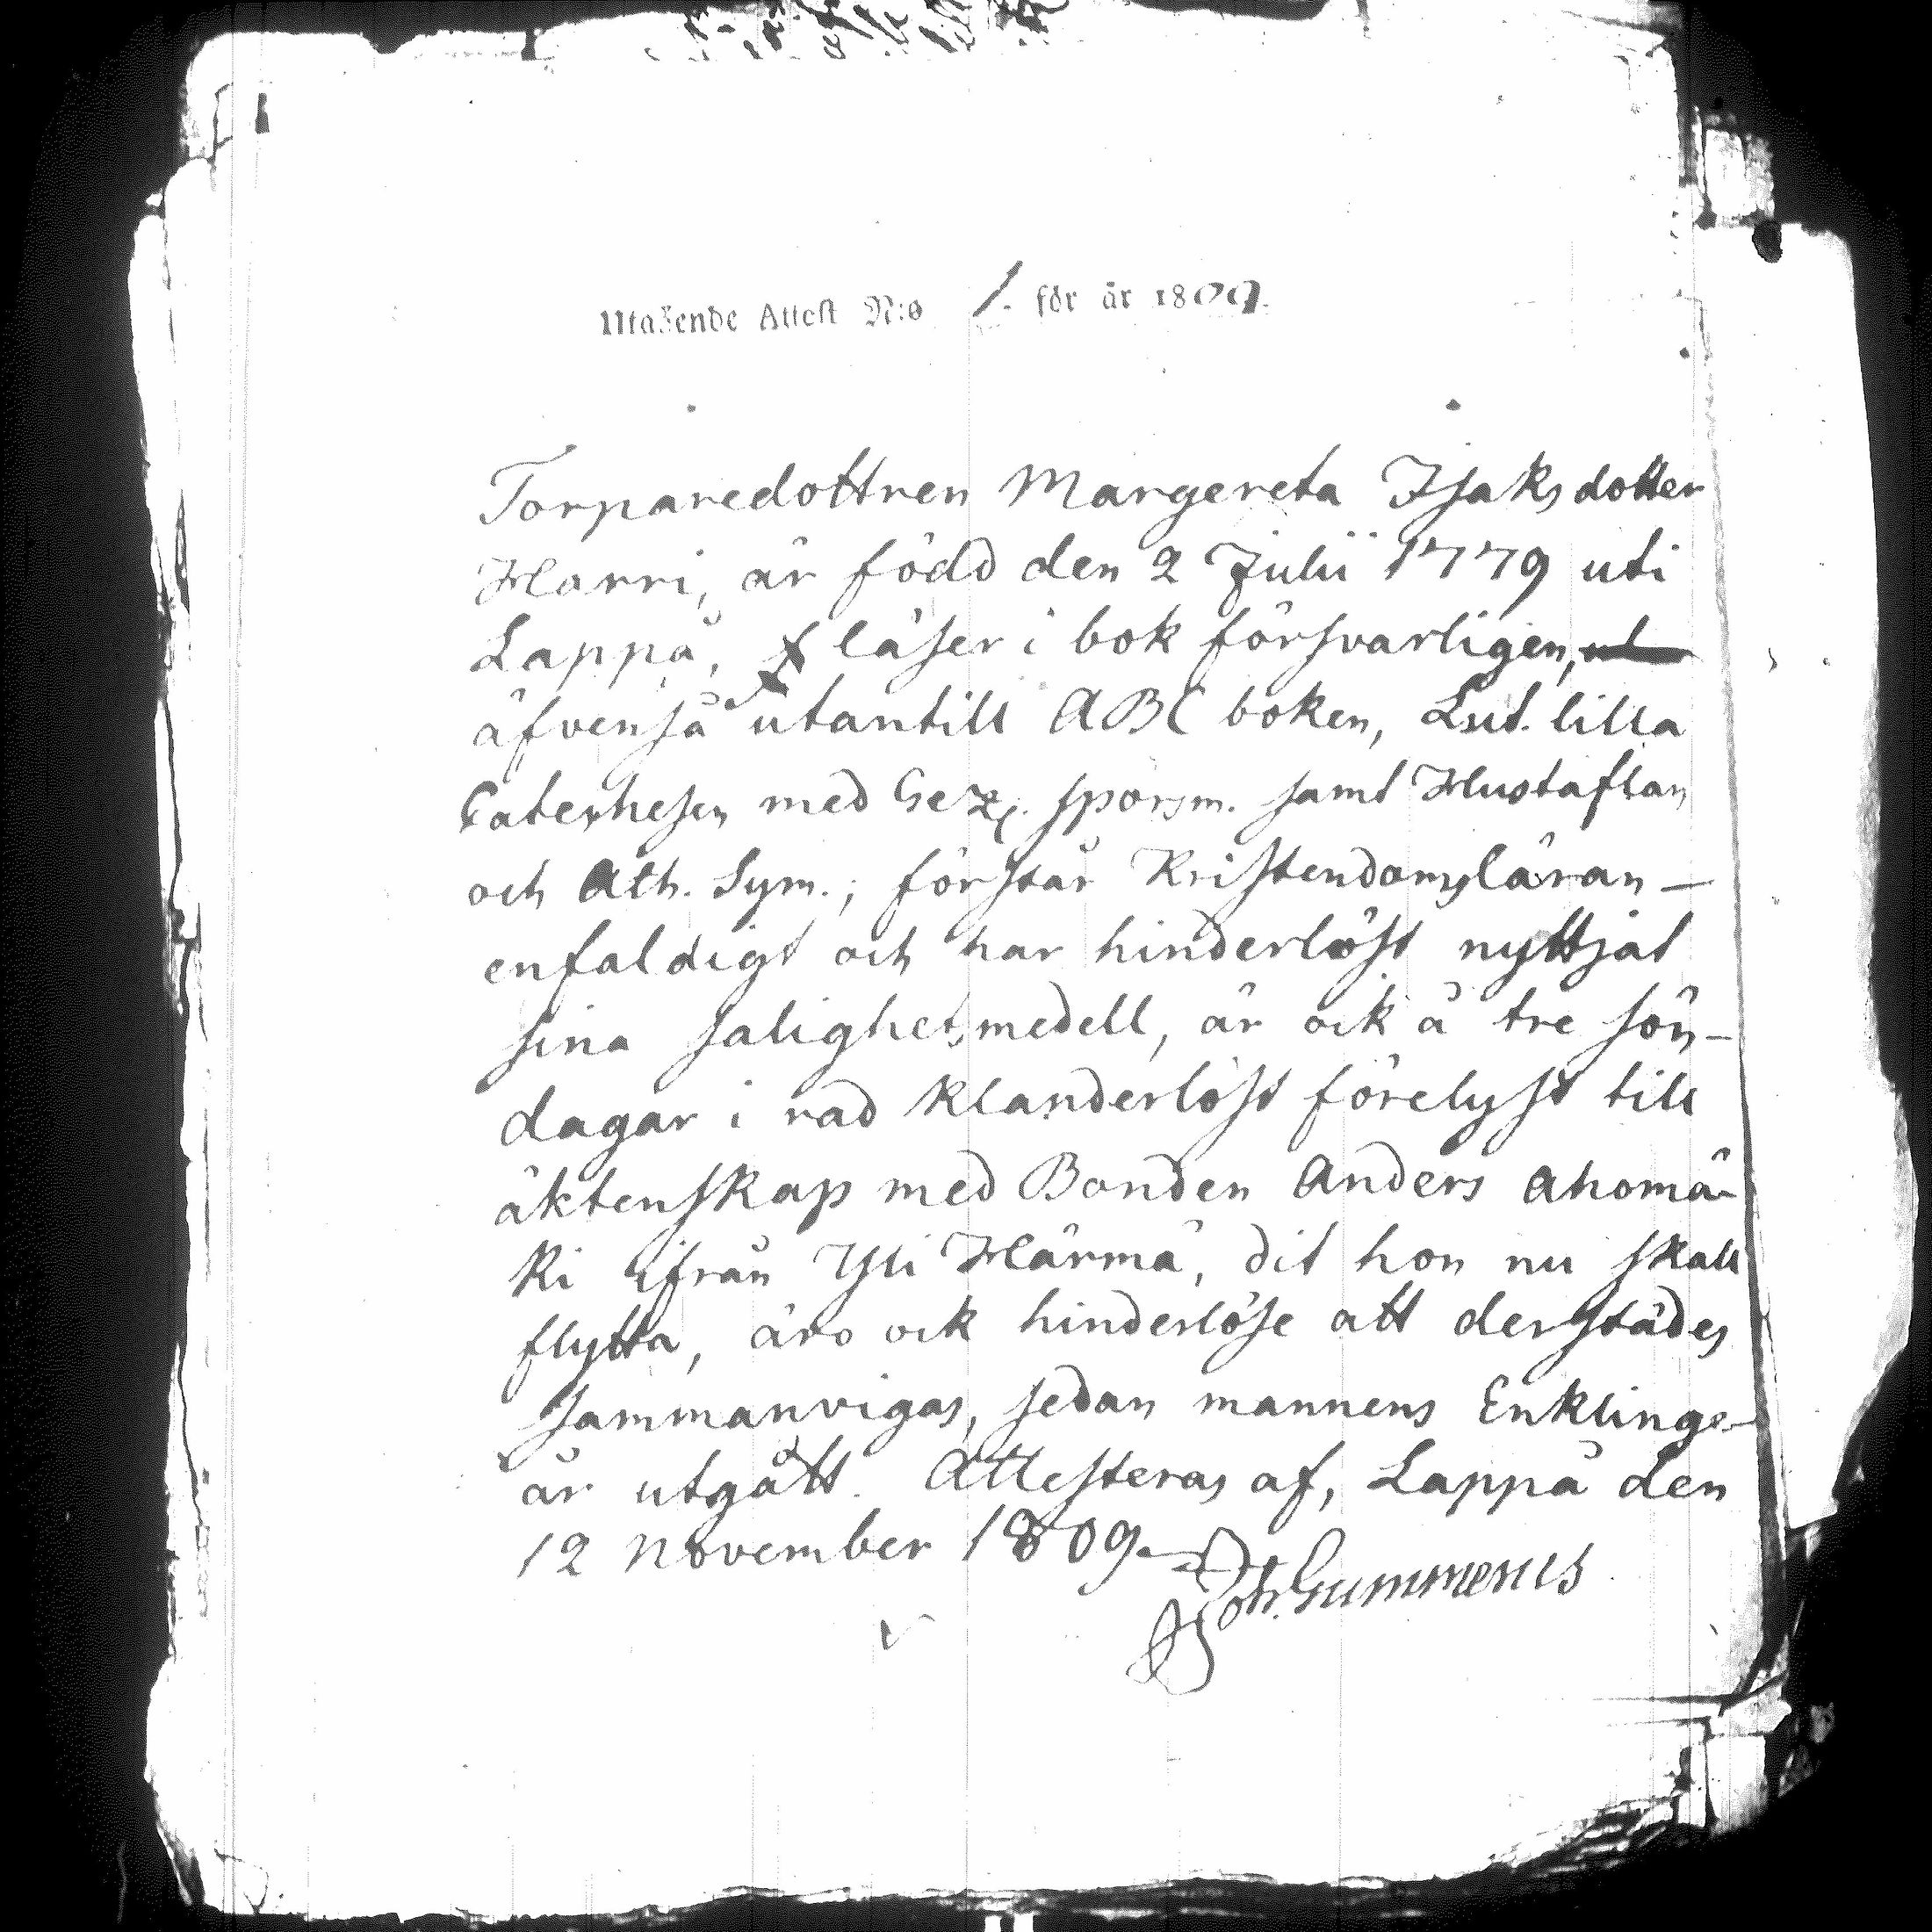 Utagende Attest N:o 1. för år 1809.
Torparedottren Margereta Isaksdotter
Harri, är född den 2 Julii 1779 uti
Lappå, läser i bok försvarligen,
äfvenså utantill ABC boken, Lut. lilla
Catechesen med Gezel. sporsm. samt Hustaflan
och Ath. Sym.; förstår Kristendomsläran –
enfaldigt och har hinderlöst nyttjat
sina salighetsmedell, är ock å tre sön-
dagar i rad klanderlöst förelyst till
äktenskap med Bonden Anders Ahomä-
ki ifrån Yli Härmä, dit hon nu skall
flytta, äro ock hinderlöse att derstädes
sammanvigas, sedan mannens Enklings-
år utgått. Attesteras af, Lappå den
12 November 1809.
Joh. Gummerus